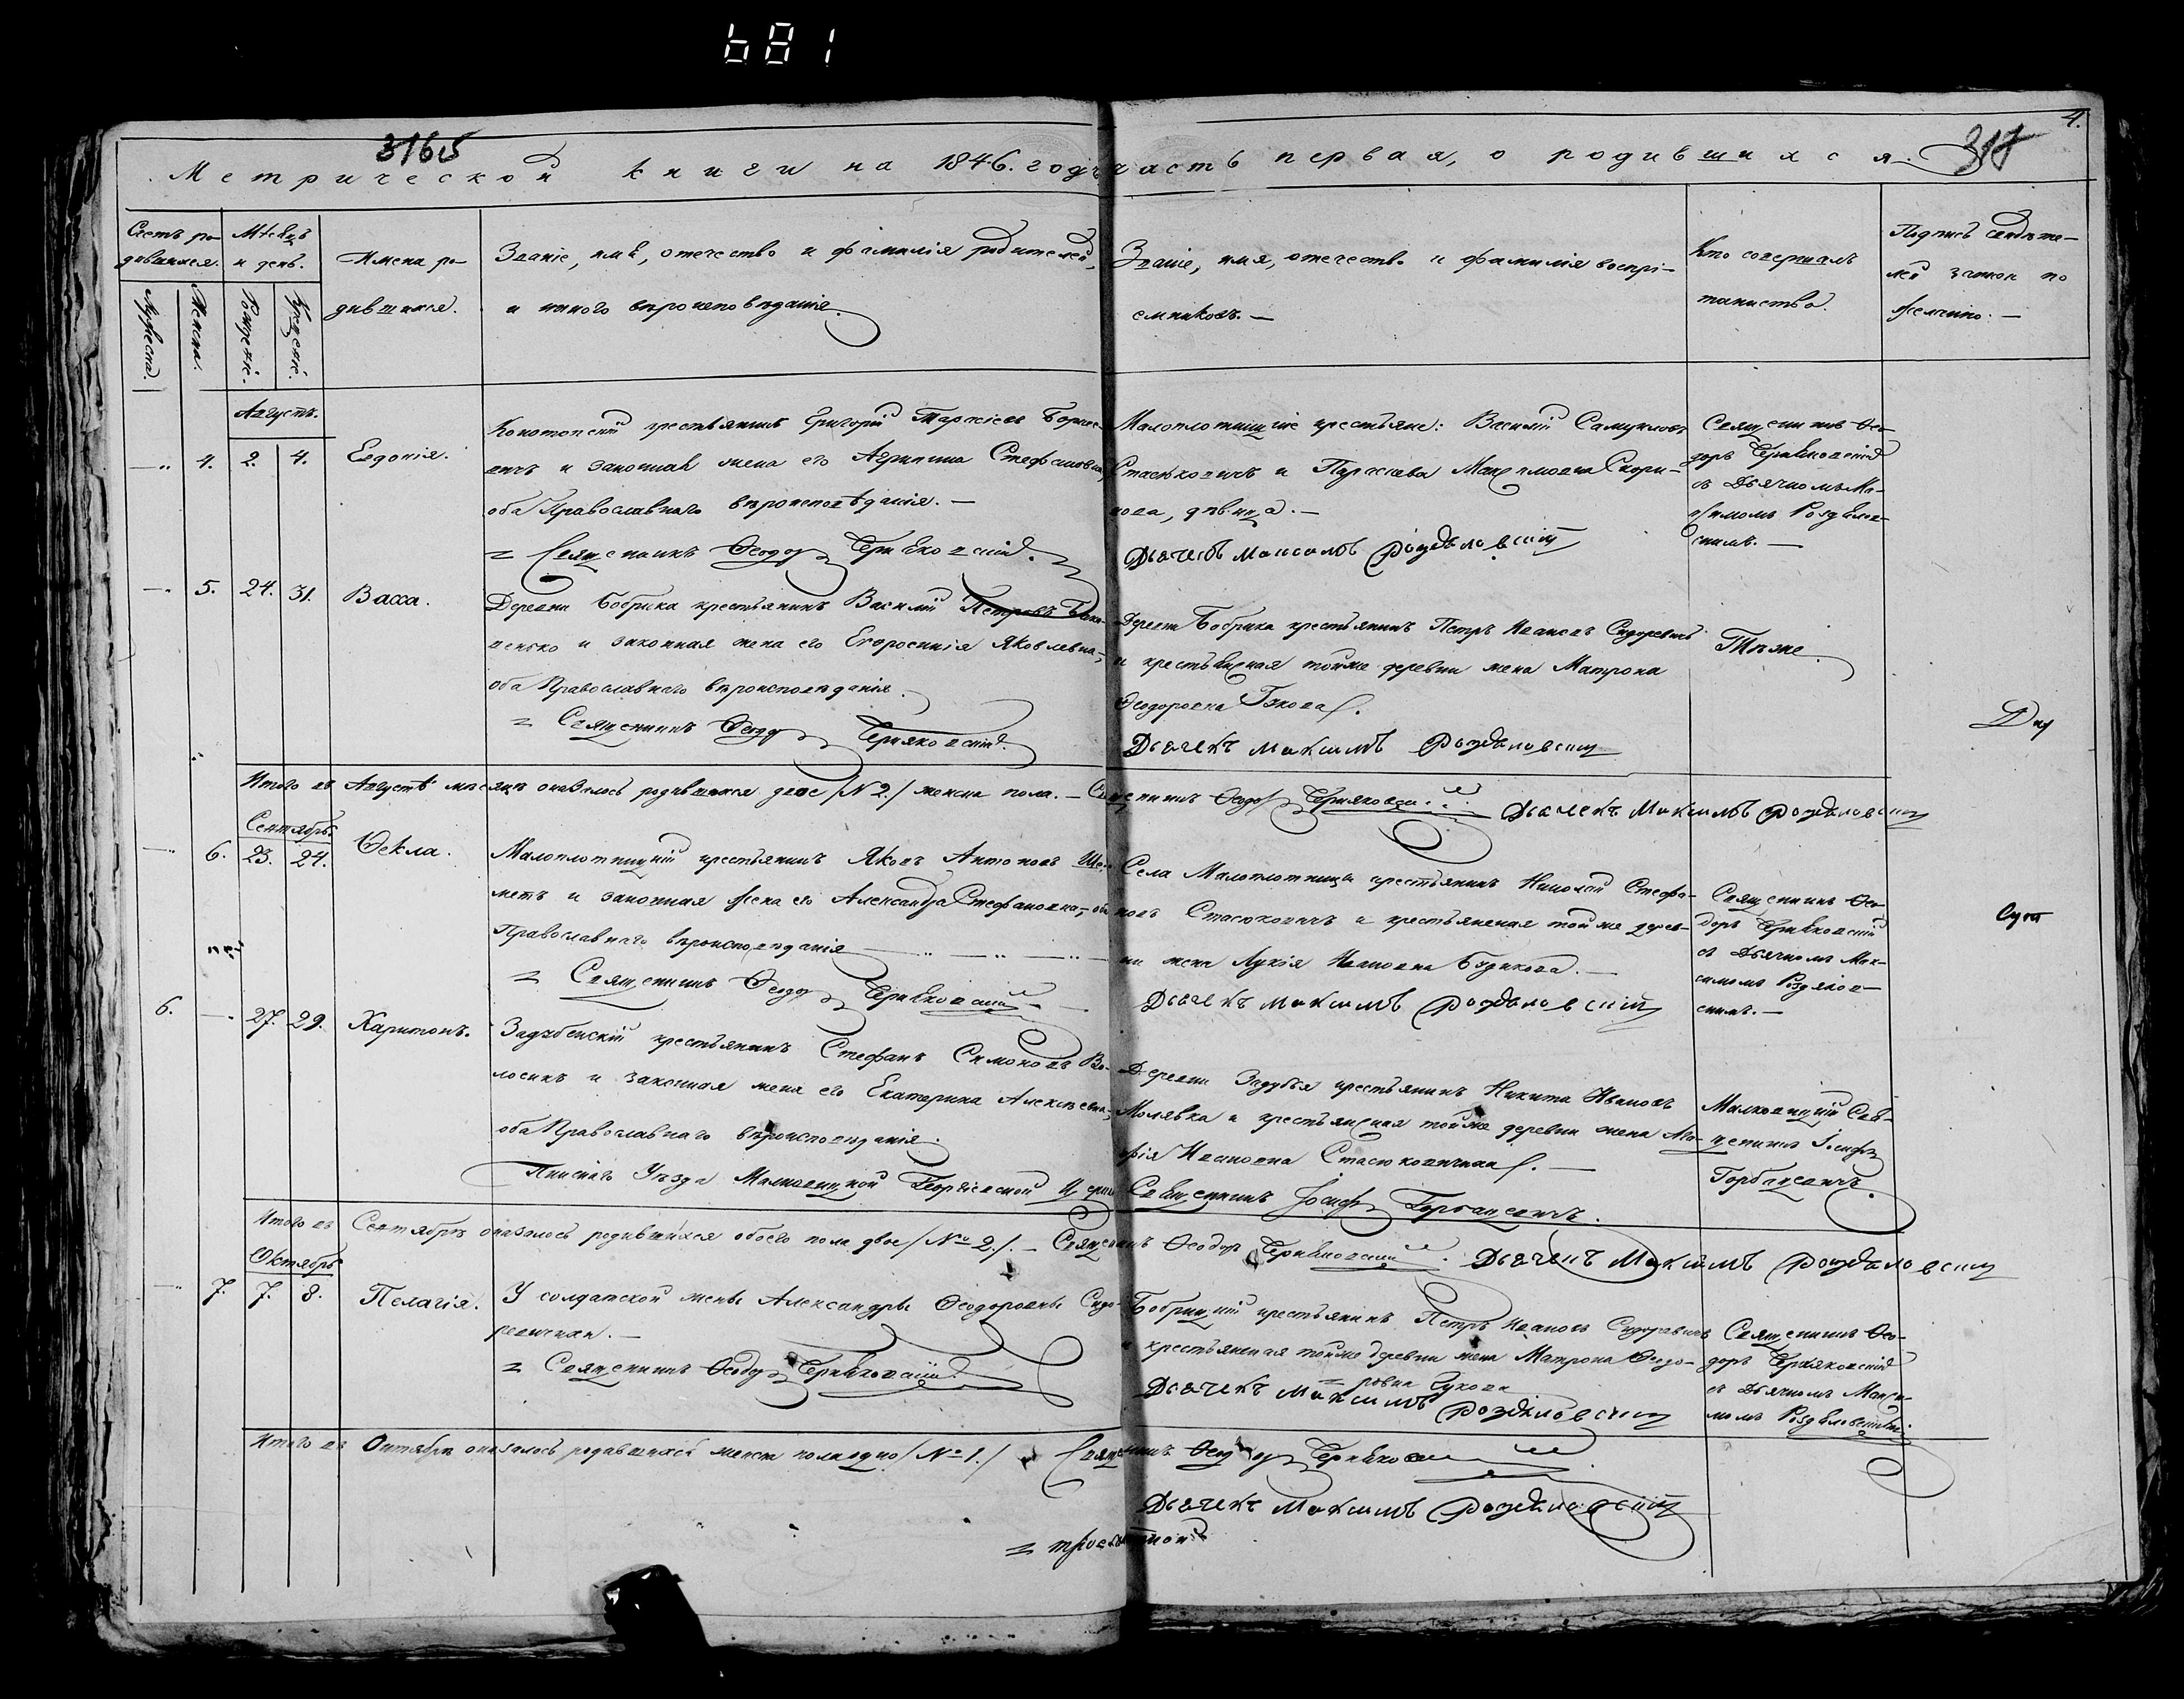 681
316об
317
4.
Метрической книги на 1846. годъ часть первая, о родившихся.
Счетъ ро-
дившихся.
Мѣсяцъ
и день.
Мужеска.
Женска.
Рожденіе.
Крещеніе.
Имена ро-
дившихся.
Званіе, имя, отечество и фамилія родителей,
и какого вѣроисповѣданія.
Званіе, имя, отечество и фамилія воспрі-
емниковъ. —
Кто совершалъ
таинство.
Подпись свидѣте-
лей записи по
желанію. —
Августъ.
4. 2. 4. Евдокія.
крестьянинъ Григорій
и законная жена его Агрипина Стефановна,
оба Православнаго вѣроисповѣданія. —
Священникъ Ѳеодоръ Черняковскій.
Малоплотницкіе крестьяне: Василій Самуиловъ
Стасюковичъ и Максимовна
дѣвица. —
Дьячекъ Максимъ Роздяловскій
Священникъ Ѳео-
доръ Черняковскій
съ Дьячкомъ Ма-
ксимомъ Роздялов-
скимъ. —
5. 24. 31. Васса.
Деревни Бобрика крестьянинъ Василій Петровъ
и законная жена его Евфросинія Яковлевна,
оба Православнаго вѣроисповѣданія.
Священникъ Ѳеодоръ Черняковскій.
Деревни Бобрика крестьянинъ Петръ Ивановъ Сидоревичъ
и крестьянская тойже деревни жена Матрона
Ѳеодоровна
Дьячекъ Максимъ Роздяловскій
Тѣже.
Итого въ Августѣ мѣсяцѣ оказалось родившихся двое /№ 2./ женска пола. — Священникъ Ѳеодоръ Черняковскій. Дьячекъ Максимъ Роздяловскій
Сентябрь.
6. 23. 24. Ѳекла.
Малоплотницкій крестьянинъ Яковъ Антоновъ Ше-
метъ и законная жена его Александра Стефановна, оба
Православнаго вѣроисповѣданія
Священникъ Ѳеодоръ Черняковскій
Села Малоплотницы крестьянинъ Николай Стефа-
новъ Стасюковичъ и крестьянская тойже дерев-
ни жена Лукія Ивановна
Дьячекъ Максимъ Роздяловскій
Священникъ Ѳео-
доръ Черняковскій
съ Дьячкомъ Мак-
симомъ Роздялов-
скимъ. —
6. 27. 29. Харитонъ.
Задубенскій крестьянинъ Стефанъ Симоновъ Во-
лосикъ и законная жена его Екатерина Алексѣевна,
оба Православнаго вѣроисповѣданія.
Пинскаго Уѣзда Малковицкой Георгіевской Церкви Священникъ Іосифъ Горбацевичъ.
Деревни Задубья крестьянинъ Никита Ивановъ
Молявка и крестьянская тойже деревни жена Ма-
рія Ивановна Стасюковичева. —
Малковицкій Свя-
щенникъ Іосифъ
Горбацевичъ.
Итого въ Сентябрѣ оказалось родившихся обоего пола двое /№ 2./. — Священникъ Ѳеодоръ Черняковскій. Дьячекъ Максимъ Роздяловскій
Октябрь
7. 7. 8. Пелагія.
У солдатской жены Александры Ѳеодоровны Сидо-
ревичевой. —
Священникъ Ѳеодоръ Черняковскій.
Бобрицкій крестьянинъ Петръ Ивановъ Сидоревичъ
и крестьянская тойже деревни жена Матрона Ѳеодо-
ровна
Дьячекъ Максимъ Роздяловскій
Священникъ Ѳео-
доръ Черняковскій
съ Дьячкомъ Макси-
момъ Роздяловскимъ.
Итого въ Октябрѣ оказалось родившихся женска пола одно /№ 1./ Священникъ Ѳеодоръ Черняковскій
Дьячекъ Максимъ Роздяловскій